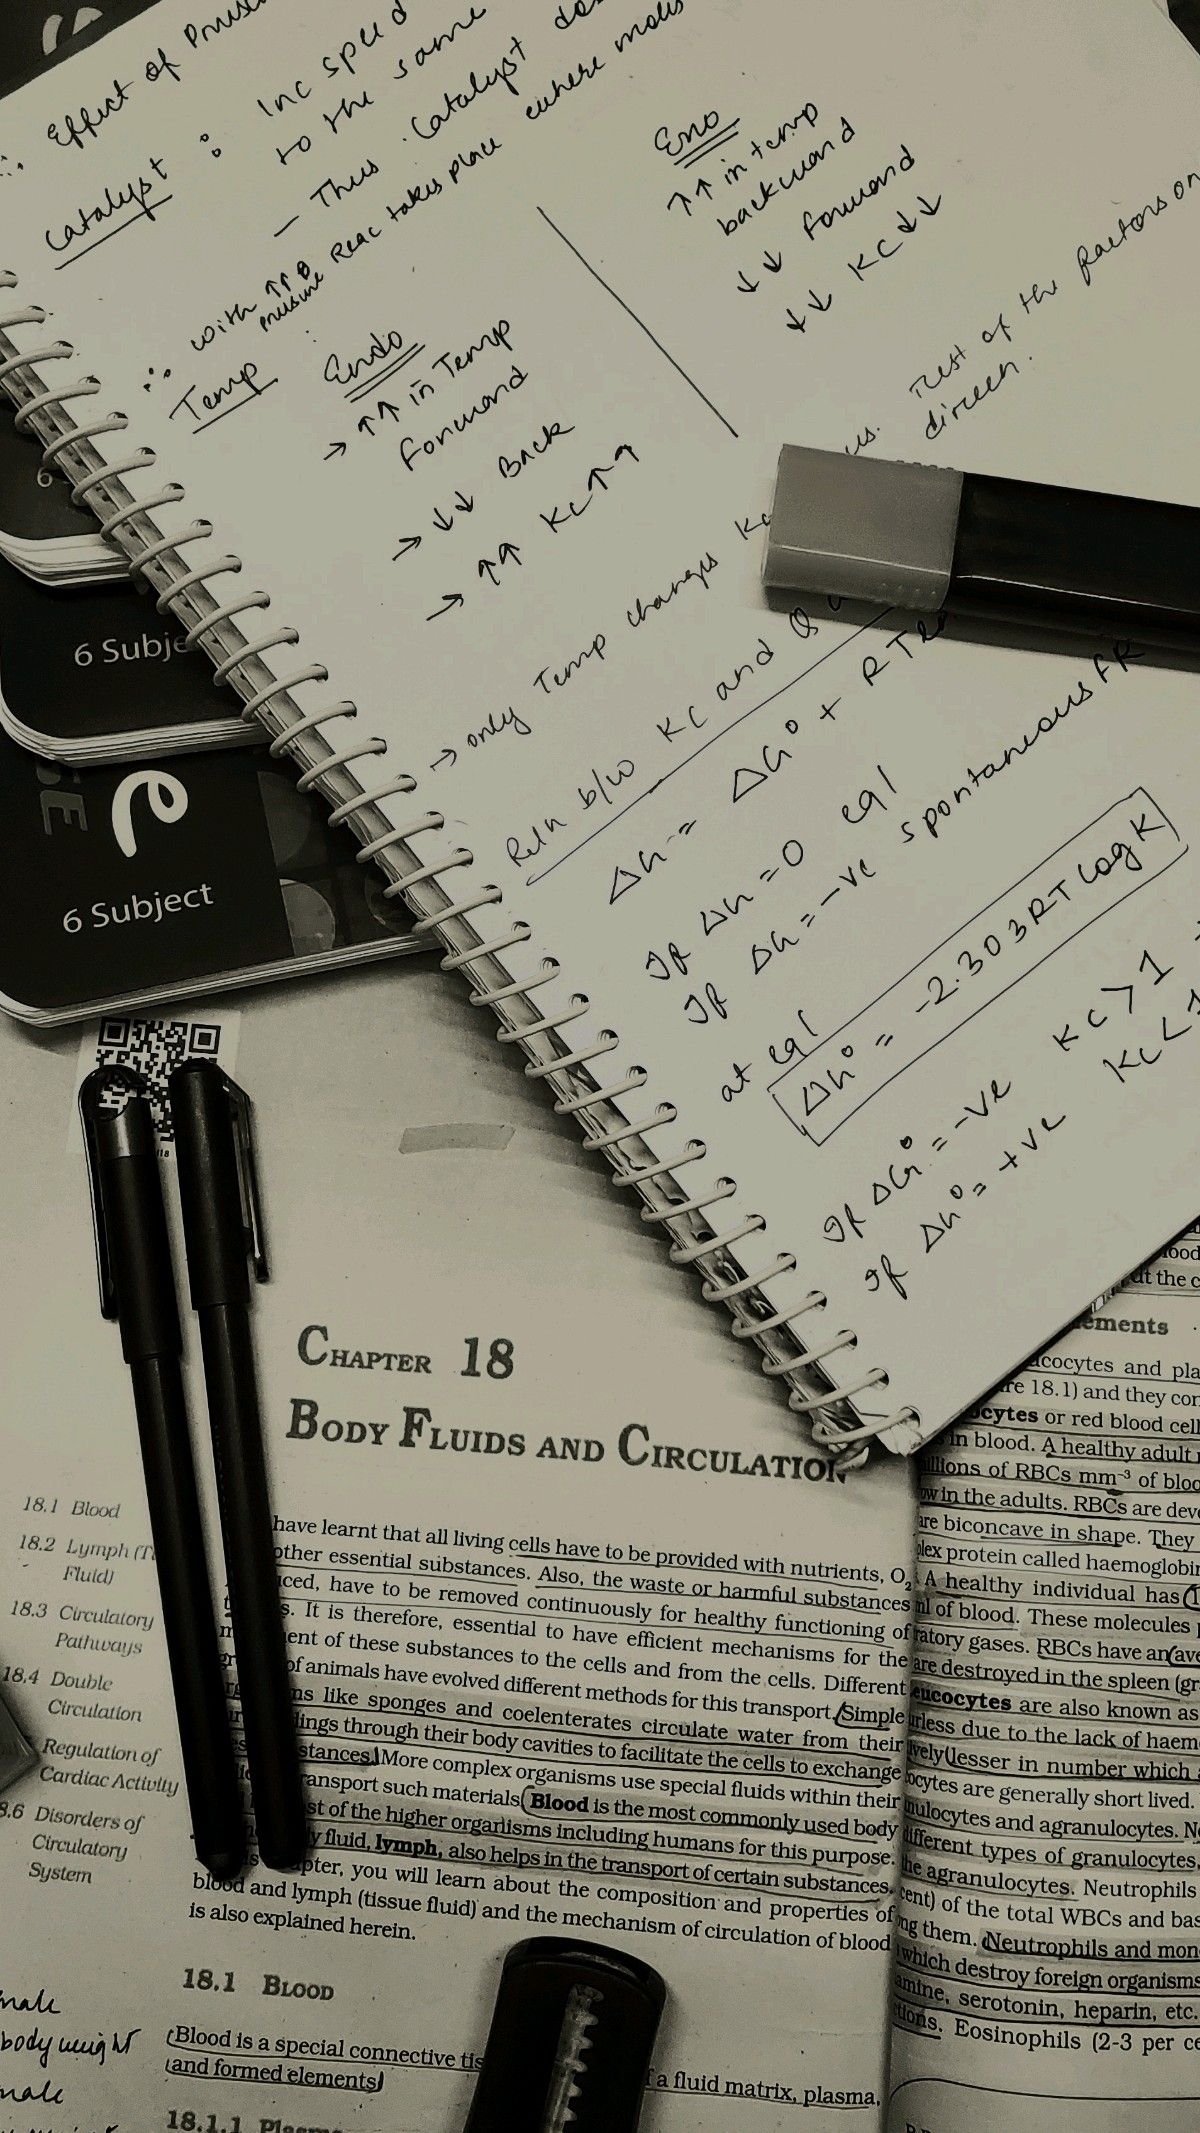 Effect of
Catalyst : Inc speed
to the same
— Thus Catalyst
∴ with ↑↑ pressure Reac takes place where moles
Temp
Endo
→ ↑↑ in Temp
forward
→ ↓↓ Back
→ ↑↑ Kc↑↑
Exo
↑↑ in temp
backward
↓↓ forward
↓↓ Kc↓↓
→ only Temp changes Kc
rest of the factors on
direcn.
Reln b/w Kc and Q
ΔG = ΔG° + RT
If ΔG = 0 eql
If ΔG = -ve spontaneous
at eql
ΔG° = -2.303RT log K
If ΔG° = -ve Kc > 1
If ΔG° = +ve Kc < 1
6
6 Subje
6 Subject
CHAPTER 18
BODY FLUIDS AND CIRCULATION
18.1 Blood
18.2 Lymph
Fluid)
18.3 Circulatory
Pathways
18.4 Double
Circulation
Regulation of
Cardiac Activity
Disorders of
Circulatory
System
have learnt that all living cells have to be provided with nutrients, O2
other essential substances. Also, the waste or harmful substances
have to be removed continuously for healthy functioning of
It is therefore, essential to have efficient mechanisms for the
of these substances to the cells and from the cells. Different
of animals have evolved different methods for this transport. Simple
like sponges and coelenterates circulate water from their
through their body cavities to facilitate the cells to exchange
stances. More complex organisms use special fluids within their
transport such materials. Blood is the most commonly used body
of the higher organisms including humans for this purpose.
fluid, lymph, also helps in the transport of certain substances.
you will learn about the composition and properties of
blood and lymph (tissue fluid) and the mechanism of circulation of blood
is also explained herein.
18.1 BLOOD
Blood is a special connective
a fluid matrix, plasma,
and formed elements
18.1.1
male
body weight
male
ut the c
ements
cocytes and pla
re 18.1) and they con
ocytes or red blood cell
in blood. A healthy adult
illions of RBCs mm⁻³ of bloo
in the adults. RBCs are deve
are biconcave in shape. They
plex protein called haemoglobin
A healthy individual has
ml of blood. These molecules
ratory gases. RBCs have an (ave
are destroyed in the spleen (gr
eucocytes are also known as
urless due to the lack of haem
ively lesser in number which
ocytes are generally short lived.
nulocytes and agranulocytes. N
different types of granulocytes,
he agranulocytes. Neutrophils
cent) of the total WBCs and bas
ng them. Neutrophils and mon
which destroy foreign organisms
amine, serotonin, heparin, etc.
tions. Eosinophils (2-3 per ce